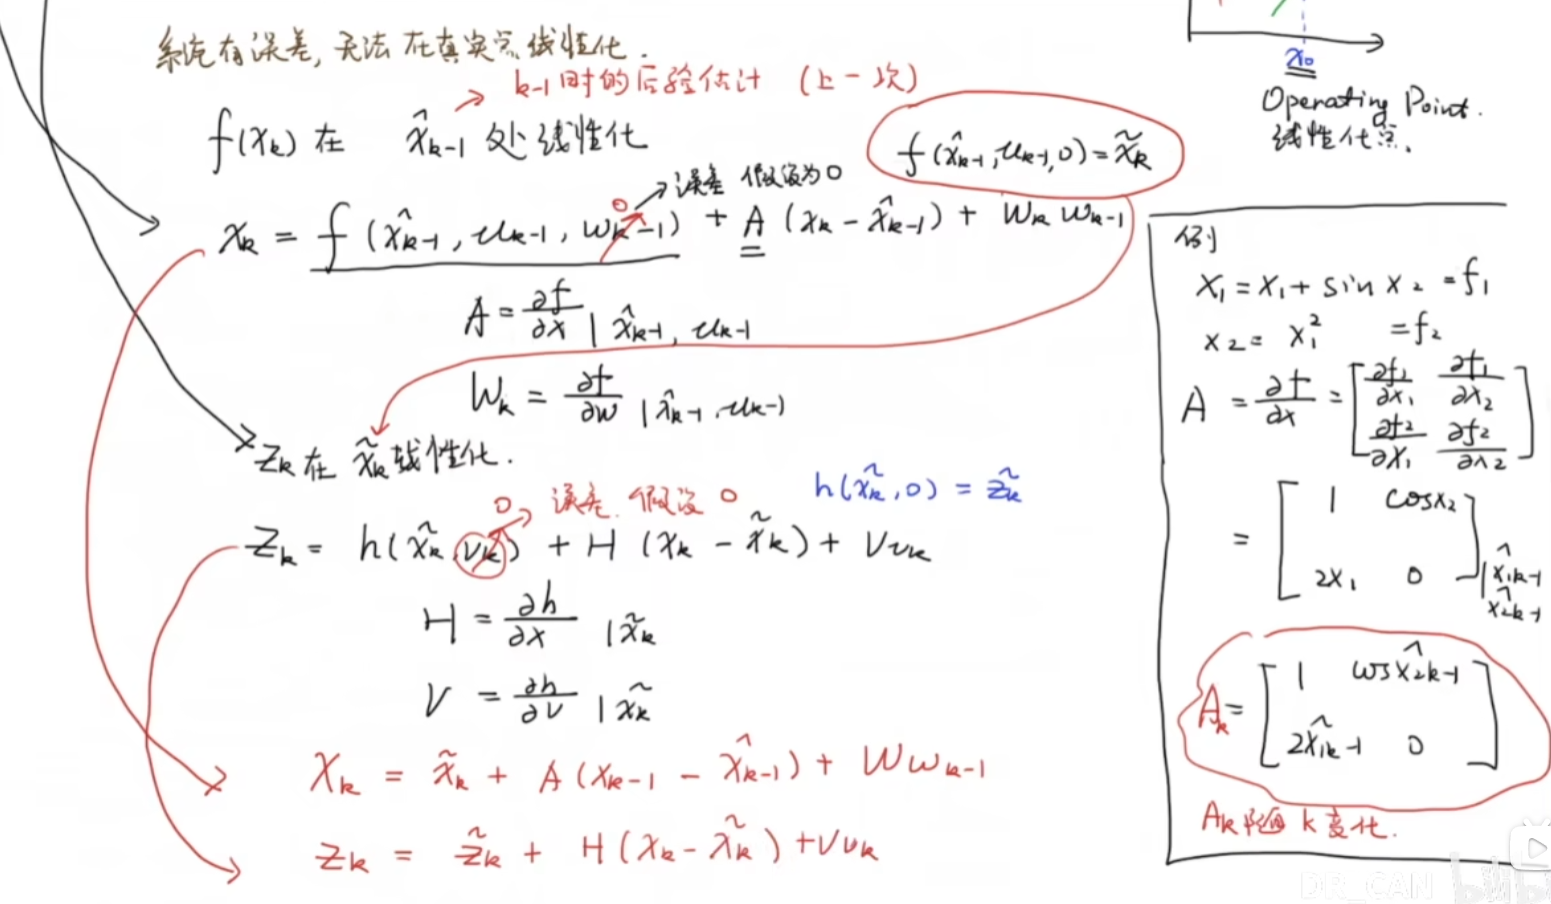 系统有误差, 无法在真实点线性化.
k-1时的后验估计 (上一次)
f(x_k) 在 x̂_{k-1} 处线性化
f(x̂_{k-1}, u_{k-1}, 0) = x̃_k
x_0
Operating Point.
线性化点.
0 → 误差 假设为0
x_k = f(x̂_{k-1}, u_{k-1}, w_{k-1}) + A(x_k - x̂_{k-1}) + W_k w_{k-1}
A = ∂f/∂x | x̂_{k-1}, u_{k-1}
W_k = ∂f/∂w | x̂_{k-1}, u_{k-1}
z_k 在 x̃_k 线性化.
0 → 误差, 假设 0
h(x̃_k, 0) = z̃_k
z_k = h(x̃_k, v_k) + H(x_k - x̃_k) + V v_k
H = ∂h/∂x | x̃_k
V = ∂h/∂v | x̃_k
x_k = x̃_k + A(x_{k-1} - x̂_{k-1}) + W w_{k-1}
z_k = z̃_k + H(x_k - x̃_k) + V v_k
例
x_1 = x_1 + sin x_2 = f_1
x_2 = x_1^2 = f_2
A = ∂f/∂x = [∂f_1/∂x_1 ∂f_1/∂x_2
∂f_2/∂x_1 ∂f_2/∂x_2]
= [1 cosx_2
2x_1 0] | x̂_{1k-1}
x̂_{2k-1}
A_k = [1 cos x̂_{2k-1}
2x̂_{1k-1} 0]
A_k 随 k 变化.
DR_CAN bilibili